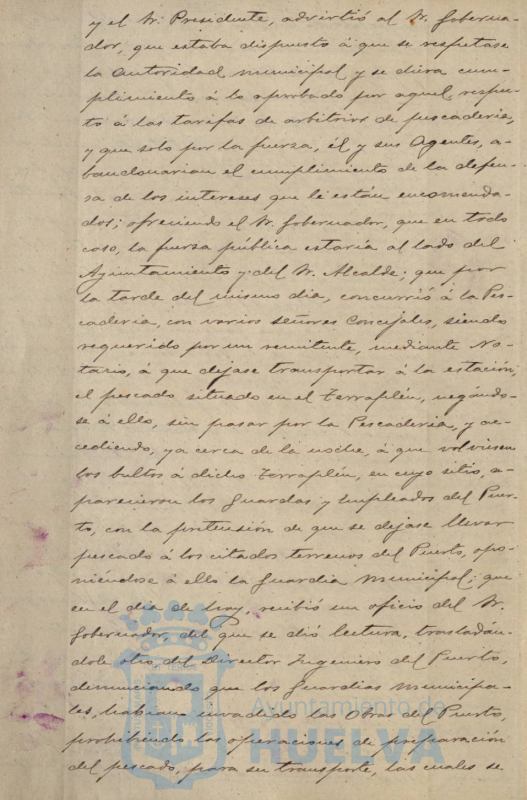 y el Sr. Presidente, advirtió al Sr. Goberna-
dor, que estaba dispuesto á que se respetase
la autoridad municipal y se diera cum-
plimiento á lo aprobado por aquel, respec-
to á las tarifas de arbitrios de pescadería,
y que solo por la fuerza, él y sus Agentes, a-
bandonarian el cumplimiento de la defen-
sa de los intereses que le están encomenda-
dos; ofreciendo el Sr. Gobernador, que en todo
caso, la fuerza pública estaría al lado del
Ayuntamiento y del Sr. Alcalde; que por
la tarde del mismo dia, concurrió á la Pes-
cadería, con varios señores Concejales, siendo
requerido por un remitente, mediante No-
tario, á que dejase transportar á la estación,
el pescado situado en el Terraplén, negándo-
se á ello, sin pasar por la Pescadería, y ac-
cediendo, ya cerca de la noche, á que volviesen
los bultos á dicho Terraplén, en cuyo sitio, a-
parecieron los Guardas y Empleados del Puer-
to, con la pretensión de que se dejase llevar
pescado á los citados terrenos del Puerto, opo-
niéndose á ello la Guardia Municipal; que
en el dia de hoy, recibió un oficio del Sr.
Gobernador, del que se dió lectura, trasladán-
dole otro, del Director Ingeniero del Puerto,
denunciando que los Guardias Municipa-
les, habian invadido las Obras del Puerto,
prohibiendo las operaciones de preparación
del pescado, para su transporte, las cuales se
Ayuntamiento de
HUELVA